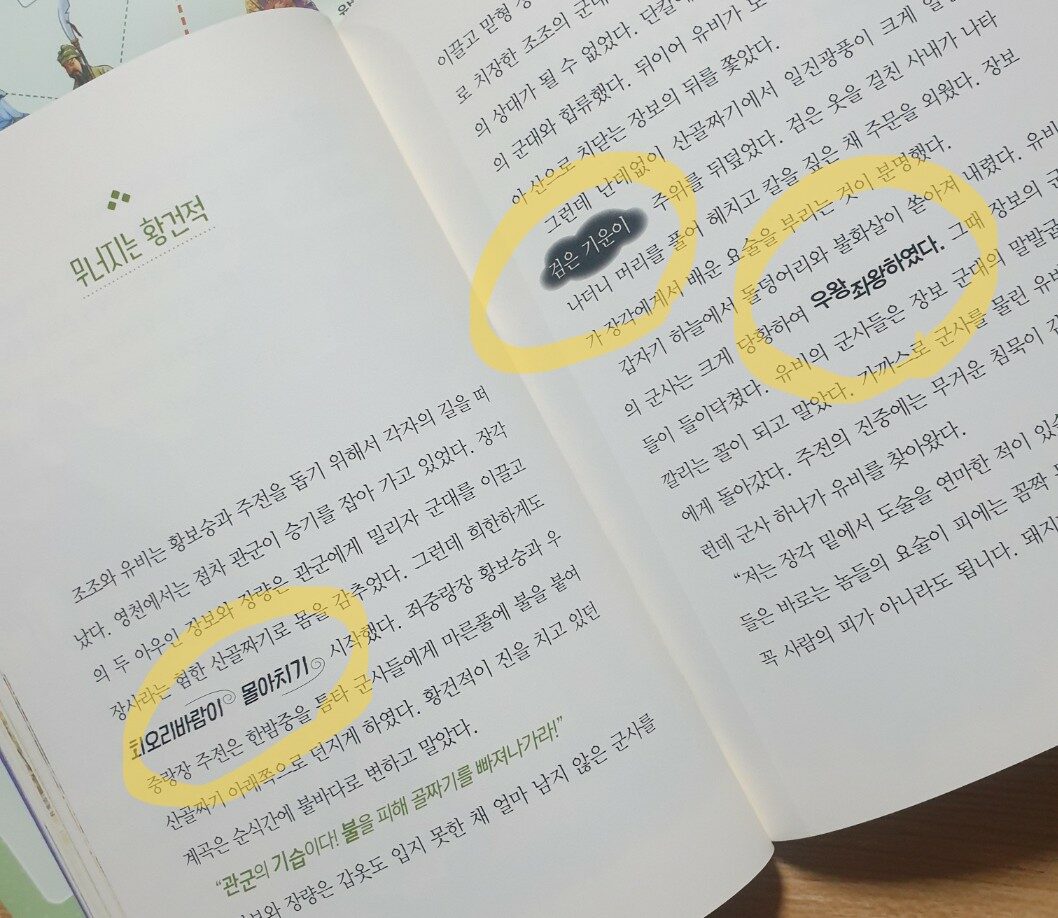 무너지는 황건적
조조와 유비는 황보숭과 주전을 돕기 위해서 각자의 길을 떠
났다. 영천에서는 점차 관군이 승기를 잡아 가고 있었다. 장각
의 두 아우인 장보와 장량은 관군에게 밀리자 군대를 이끌고
장사라는 험한 산골짜기로 몸을 감추었다. 그런데 희한하게도
회오리바람이 몰아치기 시작했다. 좌중랑장 황보숭과 우
중랑장 주전은 한밤중을 틈타 군사들에게 마른풀에 불을 붙여
산골짜기 아래쪽으로 던지게 하였다. 황건적이 진을 치고 있던
계곡은 순식간에 불바다로 변하고 말았다.
“관군의 기습이다! 불을 피해 골짜기를 빠져나가라!”
장량은 갑옷도 입지 못한 채 얼마 남지 않은 군사를
이끌고
로 치장한 조조의 군대
의 상대가 될 수 없었다. 뒤이어 유비가
의 군대와 합류했다.
산으로 치닫는 장보의 뒤를 쫓았다.
그런데 난데없이 산골짜기에서 일진광풍이 크게
검은 기운이 주위를 뒤덮었다. 검은 옷을 걸친 사내가 나타
나더니 머리를 풀어 헤치고 칼을 짚은 채 주문을 외웠다. 장보
가 장각에게서 배운 요술을 부리는 것이 분명했다.
갑자기 하늘에서 돌덩어리와 불화살이 쏟아져 내렸다. 유비
의 군사는 크게 당황하여 우왕좌왕하였다. 그때 장보의 군
들이 들이닥쳤다. 유비의 군사들은 장보 군대의 말발굽
깔리는 꼴이 되고 말았다. 가까스로 군사를 물린 유비
에게 돌아갔다. 주전의 진중에는 무거운 침묵이
런데 군사 하나가 유비를 찾아왔다.
“저는 장각 밑에서 도술을 연마한 적이
들은 바로는 놈들의 요술이 피에는 꼼짝
꼭 사람의 피가 아니라도 됩니다. 돼지